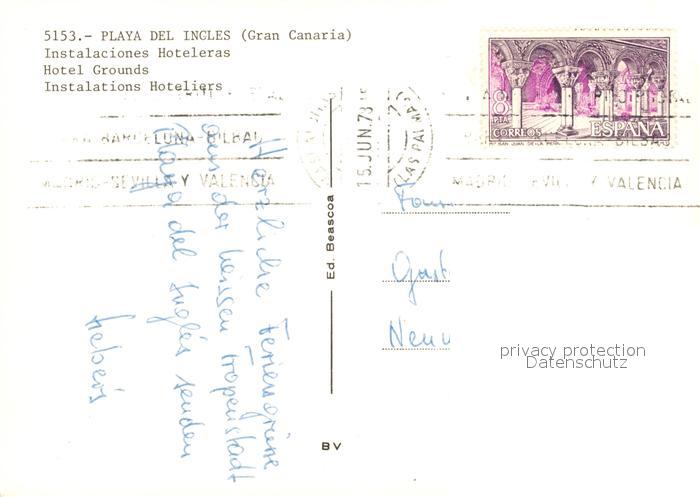 5153.- PLAYA DEL INGLES (Gran Canaria)
Instalaciones Hoteleras
Hotel Grounds
Instalations Hoteliers
8
PTA
CORREOS
ESPAÑA
Mº SAN JUAN DE LA PEÑA
BARCELONA-BILBAO
MADRID-SEVILLA Y VALENCIA
15.JUN.78
LAS PALMAS
MADRID SEVILLA Y VALENCIA
Herzliche Feriengrüsse
aus der heissen Tropenstadt
Playa del Inglés senden
Ed. Beascoa
Fam.
Gast
Neu
privacy protection
Datenschutz
BV